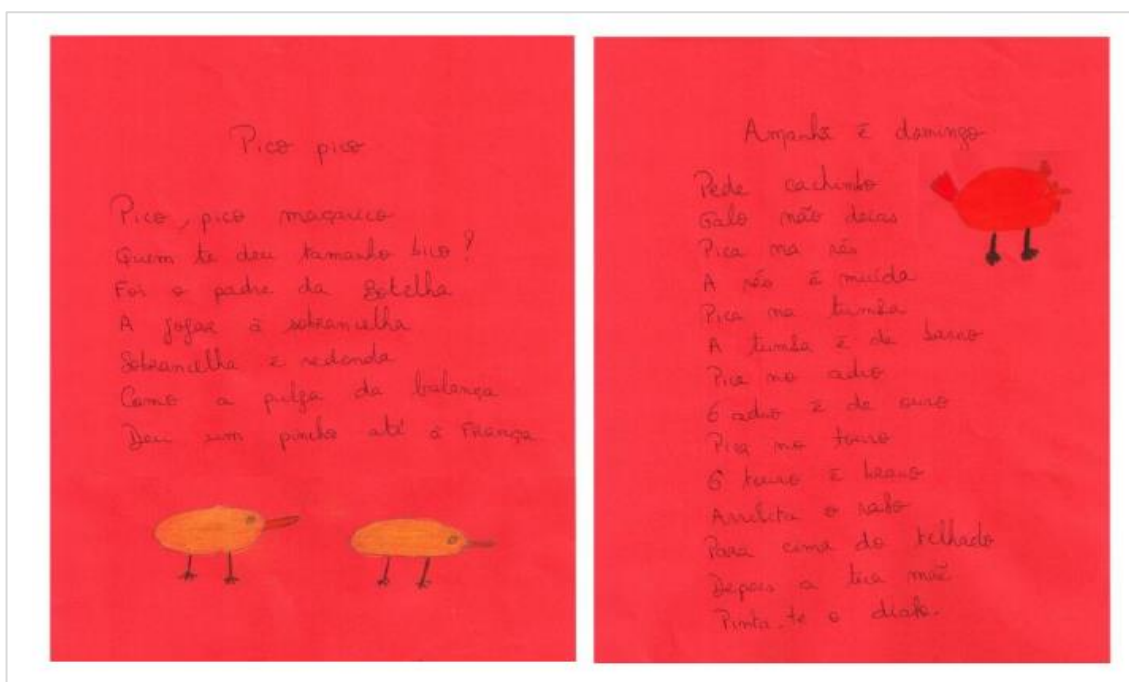 Pico pico
Pico, pico maçarico
Quem te deu tamanho bico?
Foi o padre da Botelha
A jogar à sobrancelha
Sobrancelha é redonda
Como a pulga da balança
Deu um pincho até à França
Amanhã é domingo
Pede cachimbo
Galo não docas
Pica na rés
A rés é muída
Pica na tumba
A tumba é de barro
Pica no adro
O adro é de ouro
Pica no touro
O touro é bravo
Arrebita o rabo
Para cima do telhado
Depois a tua mãe
Pinta-te o diabo.